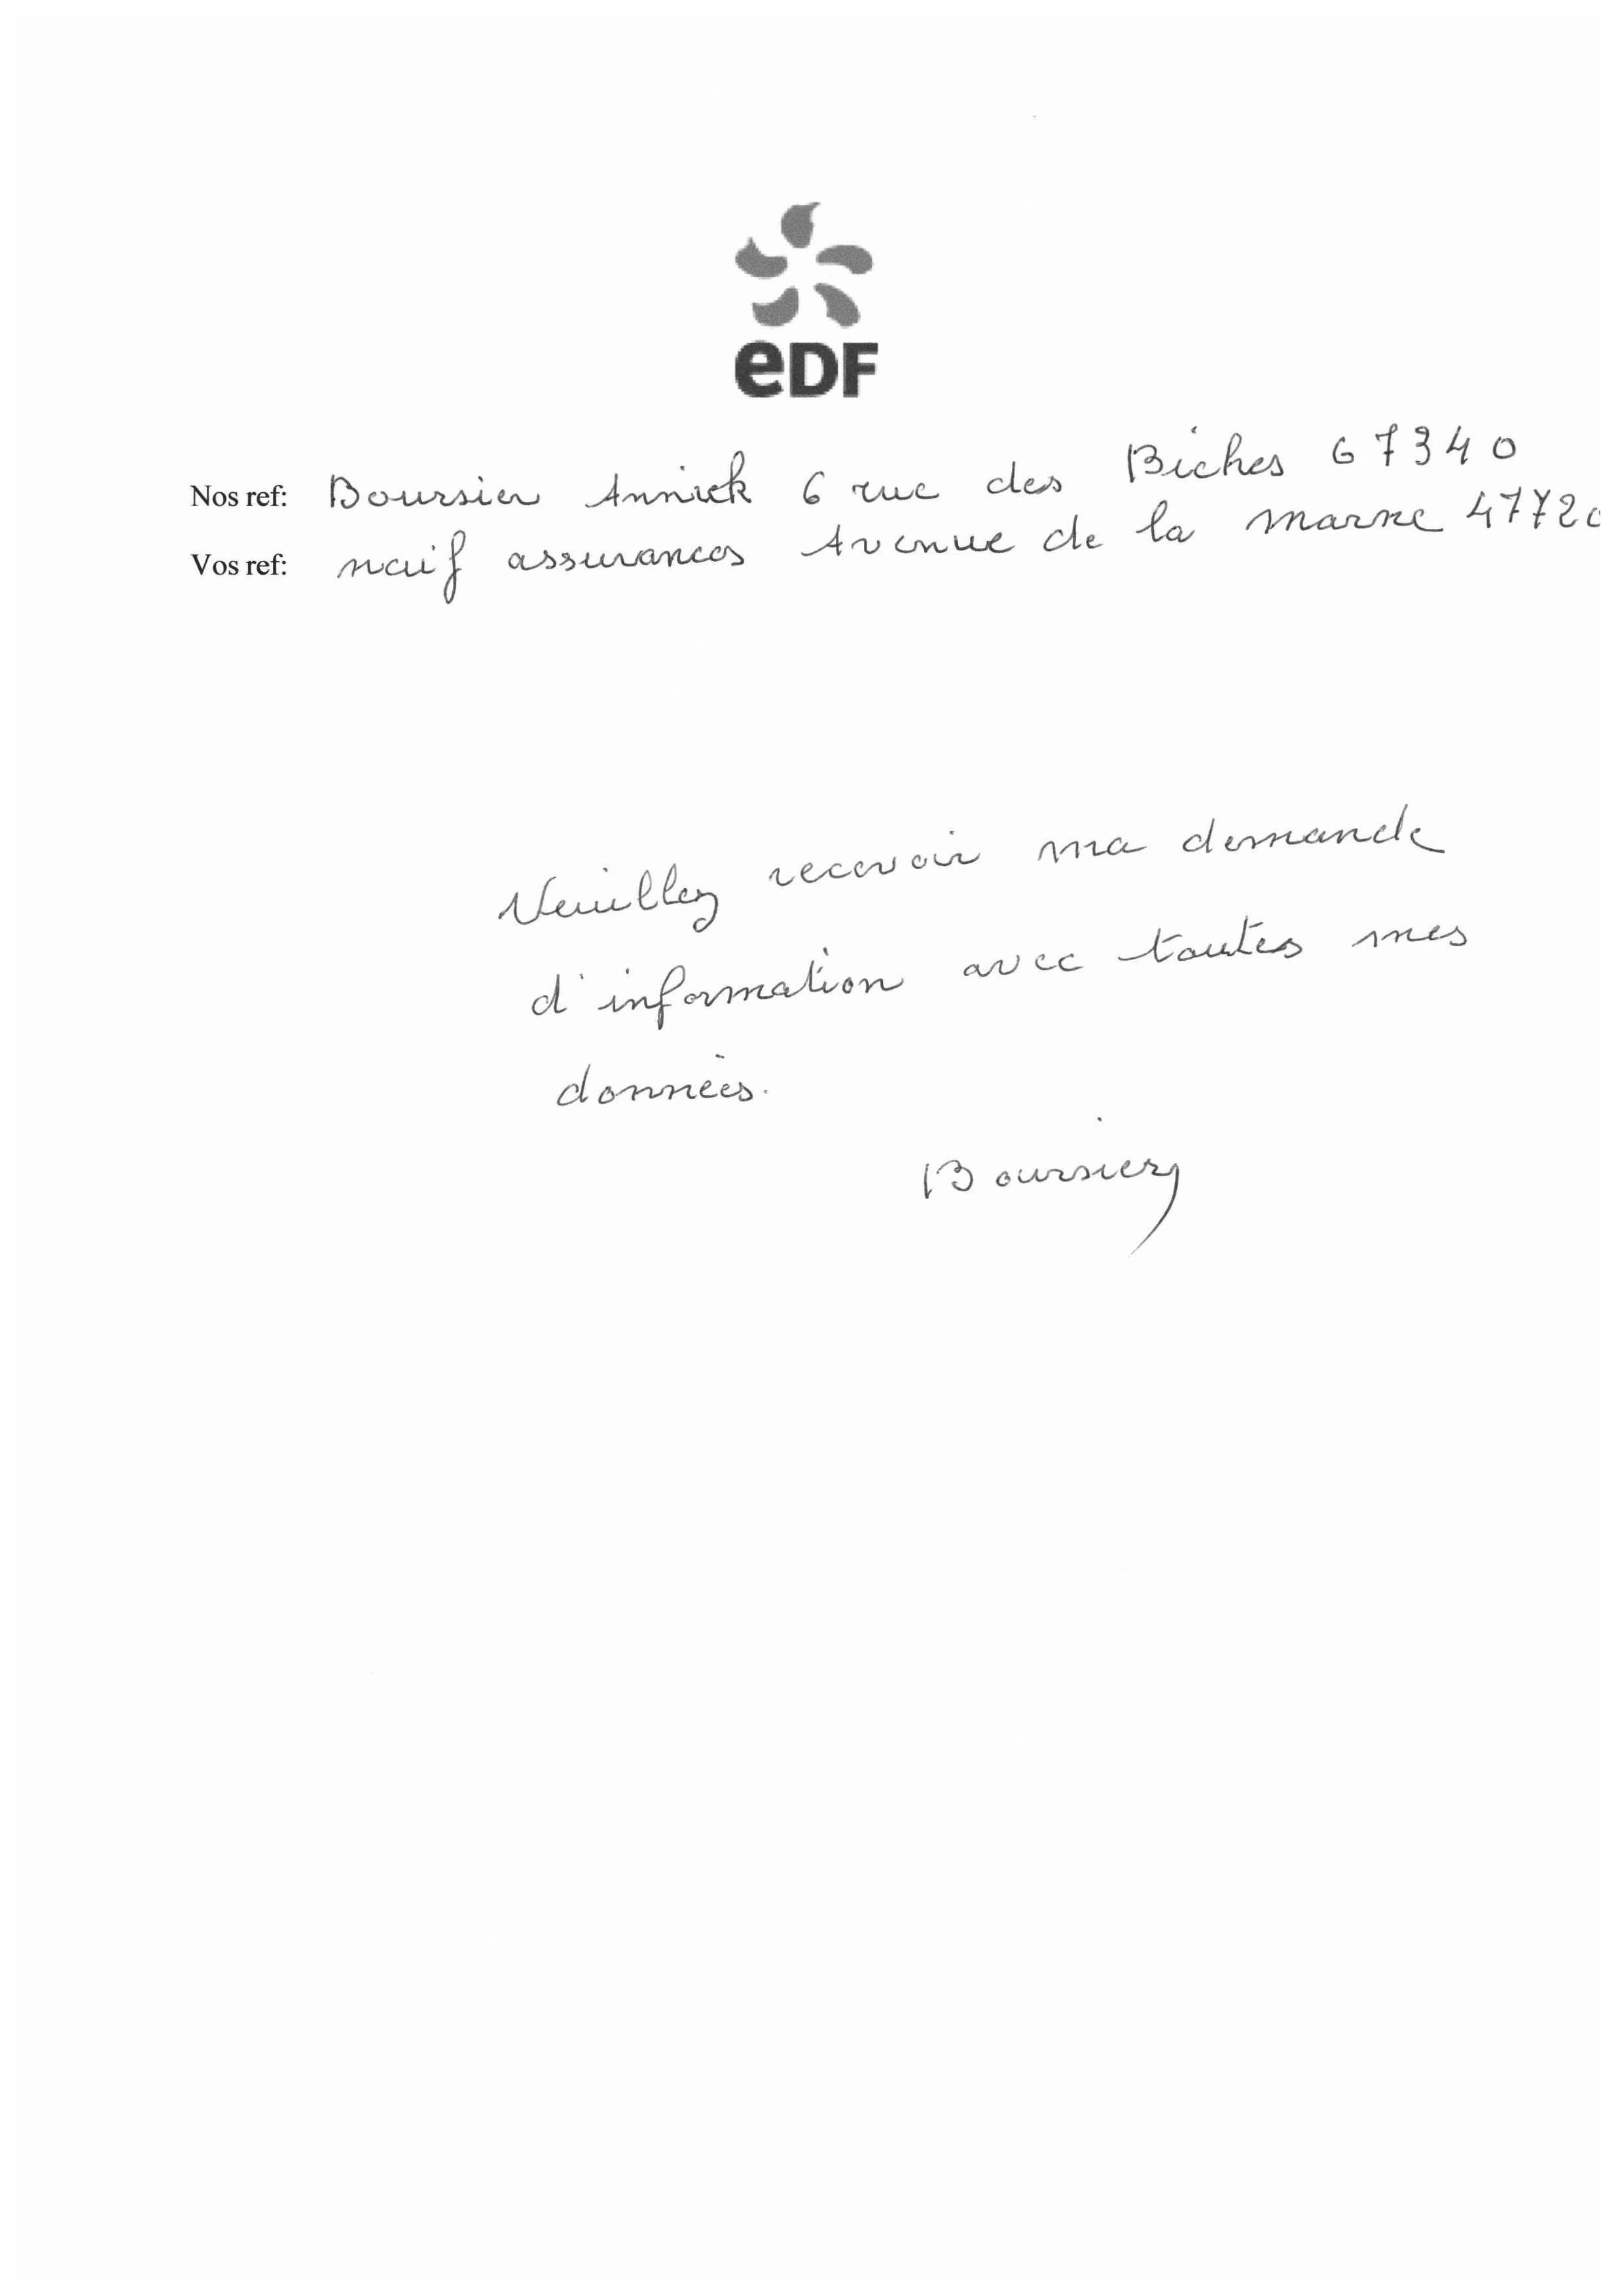 eDF
Nos ref: Boursier Annick 6 rue des Biches 67340
Vos ref: naif assurances Avenue de la marne 47720
Veuillez recevoir ma demande
d'information avec toutes mes
données.
Boursier